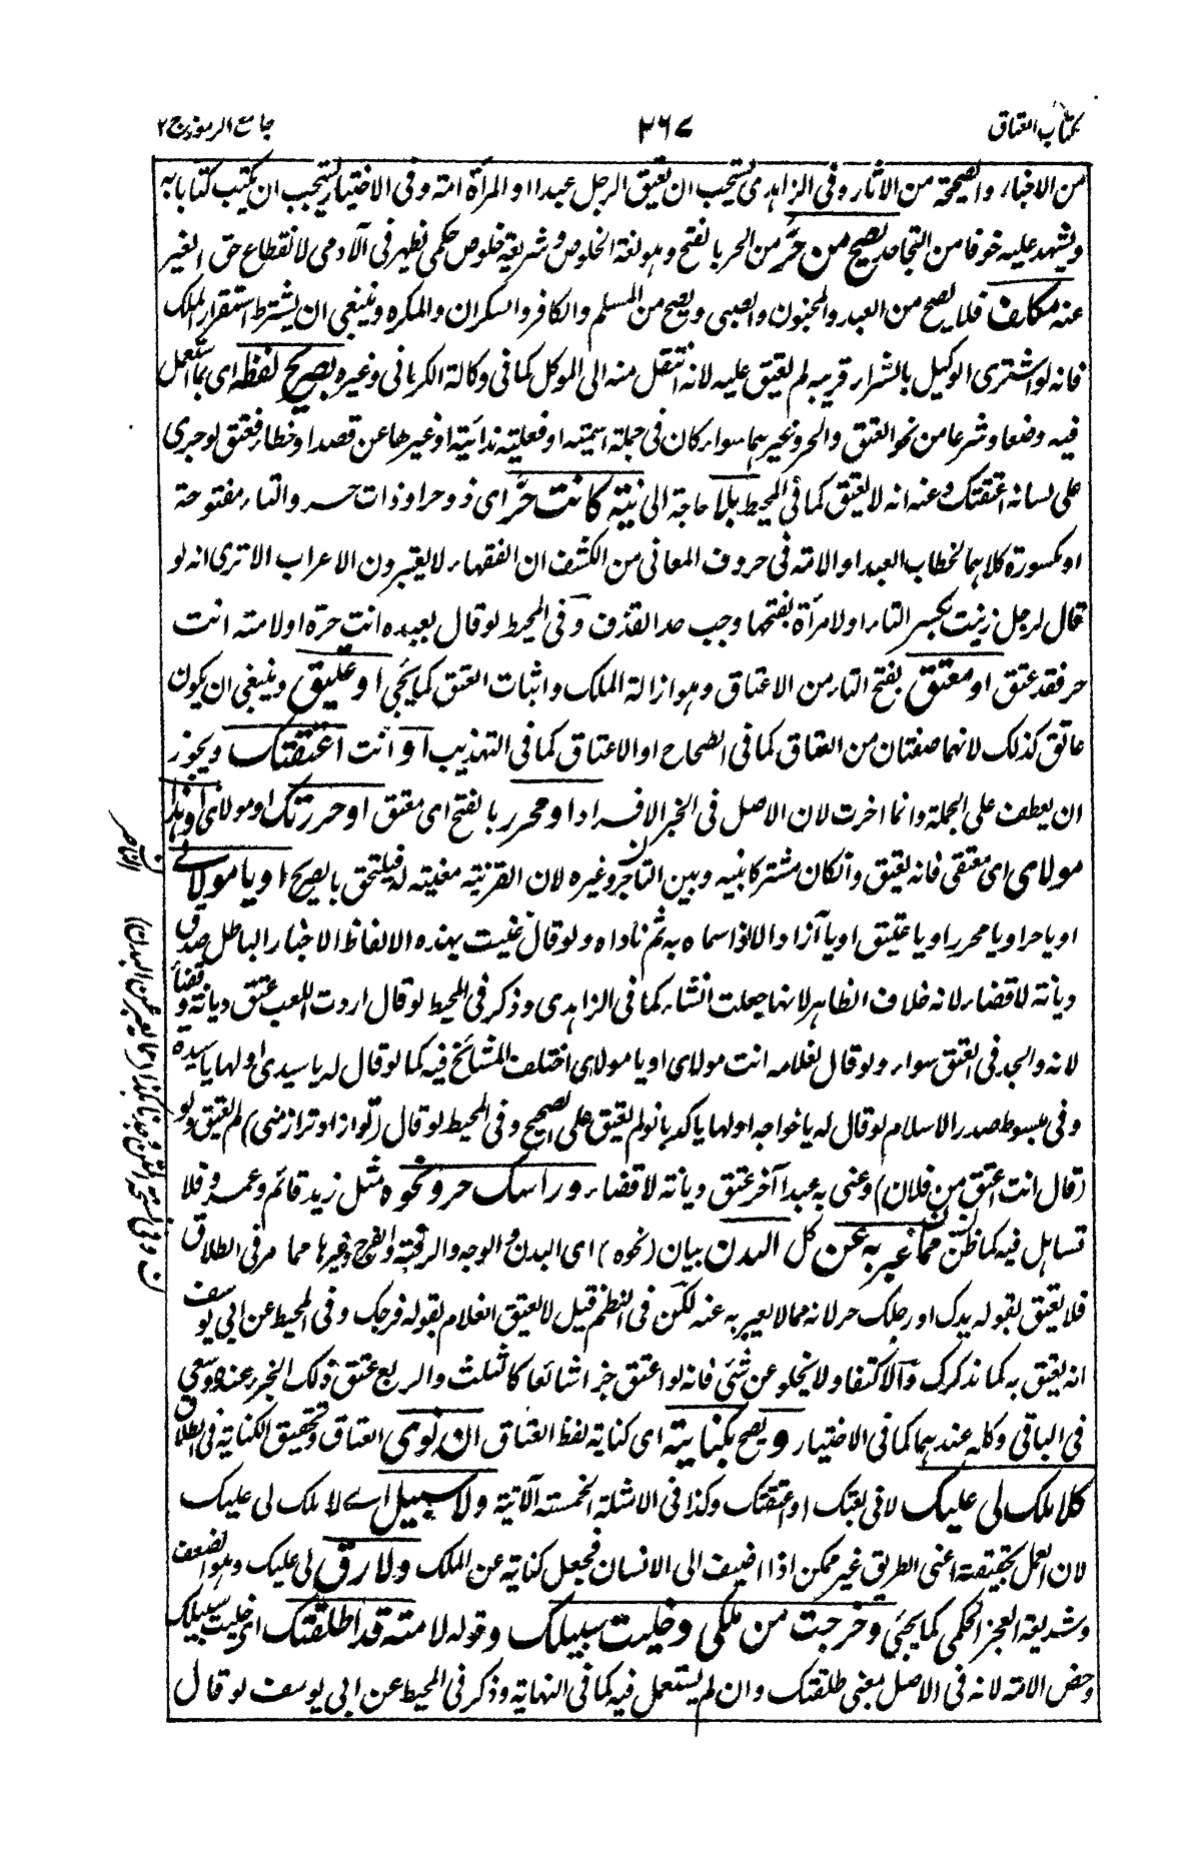 كتاب العتاق
٣٦٧
جامع الرموز ج ٢
من الاخبار والصحيحة من الآثار وفى الزاهدى يستحب ان يعتق الرجل عبدا او المرأة امة وفى الاختيار يستحب ان يكتب كتابا به
ويشهد عليه خوفا من التجاحد يصح من حر من الحر بالفتح وهو لغة الخلوص وشريعة خلوص حكمى يظهر فى الآدمى لانقطاع حق الغير
عنه مكلف فلا يصح من العبد والمجنون والصبى ويصح من المسلم والكافر والسكران والمكره وينبغى ان يشترط استقرار الملك
فانه لو اشترى الوكيل بالشراء قريبه لم يعتق عليه لانه انتقل منه الى الموكل كما فى وكالة الكرمانى وغيره بصريح لفظه اى بما استعمل
فيه وضعا وشرعا من نحو العتق والحر وتحريرهما سواء كان فى جملة اسمية او فعلية ندائية او غيرها عن قصد او خطأ فعتق لو جرى
على لسانه اعتقتك وعنه انه لا يعتق كما فى المحيط بلا حاجة الى نية كانت حر اى ذو حر او ذات حر والتاء مفتوحة
او مكسورة كلاهما لخطاب العبد او الامة فى حروف المعانى من الكشف ان الفقهاء لا يعتبرون الاعراب الا ترى انه لو
قال لرجل زنيت بكسر التاء او لامرأة بفتحها وجب حد القذف وفى المحيط لو قال لعبده انت حرة او لامته انت
حر فقد عتق او معتق بفتح التاء من الاعتاق وهو ازالة الملك واثبات العتق كما يجئ او عتيق وينبغى ان يكون
عاتق كذلك لانهما صفتان من العتاق كما فى الصحاح او الاعتاق كما فى التهذيب او انت اعتقتك ويجوز
ان يعطف على الجملة وانما اخرت لان الاصل فى الخبر الافراد او محرر بالفتح اى معتق او حررتك او مولاى او هذا
مولاى اى معتقى فانه يعتق وان كان مشتركا بينه وبين الناصر وغيره لان القرينة معينة له فيلتحق بالصريح او يا مولاى
او يا حر او يا محرر او يا عتيق او يا آزاد الا اذا سماه به ثم ناداه ولو قال عنيت بهذه الالفاظ الاخبار الباطل صدق
ديانة لا قضاء لانه خلاف الظاهر لانها جعلت انشاء كما فى الزاهدى وذكر فى المحيط لو قال اردت اللعب عتق ديانة وقضاء
لانه والجد فى العتق سواء ولو قال لغلامه انت مولاى او يا مولاى اختلف المشائخ فيه كما لو قال له يا سيدى او لها يا سيدة
وفى مبسوط صدر الاسلام لو قال له يا خواجه او لها يا كدبانو لم يعتق على الصحيح وفى المحيط لو قال (تو آزاد تر از منى) لم يعتق ولو
(قال انت اعتق من فلان) وعنى به عبدا آخر عتق ديانة لا قضاء وراسك حر ونحوه مثل زيد قائم وعمرو فلا
تساهل فيه كما ظن مما عبر به عن كل البدن بيان (نحوه) اى البدن والوجه والرقبة والفرج وغيرها مما مر فى الطلاق
فلا يعتق بقوله يدك او رجلك حر لانه مما لا يعبر به عنه لكن فى النظم قيل لا يعتق الغلام بقوله فرجك وفى المحيط عن ابى يوسف
انه يعتق به كما بذكرك والاكتفاء لا يخلو عن شئ فانه لو اعتق جزءا شائعا كالثلث والربع عتق ذلك الجزء عنده وسعى
فى الباقى وكله عندهما كما فى الاختيار ويصح بكنايته اى كناية لفظ العتاق ان نوى العتاق وتحقيق الكناية فى الطلاق
كلا ملك لى عليك لانى بعتك او اعتقتك وكذا فى الامثلة الخمسة الآتية ولا سبيل اے لا ملك لى عليك
لان العمل بحقيقته اعنى الطريق غير ممكن اذا اضيف الى الانسان فجعل كناية عن الملك ولا رق لى عليك وهو الضعف
وشريعة العجز الحكمى كما يجئ وخرجت من ملكى وخليت سبيلك وقوله لامته قد اطلقتك اى خليت سبيلك
وخص الامة لانه فى الاصل بمعنى طلقتك وان لم يستعمل فيه كما فى النهاية وذكر فى المحيط عن ابى يوسف لو قال